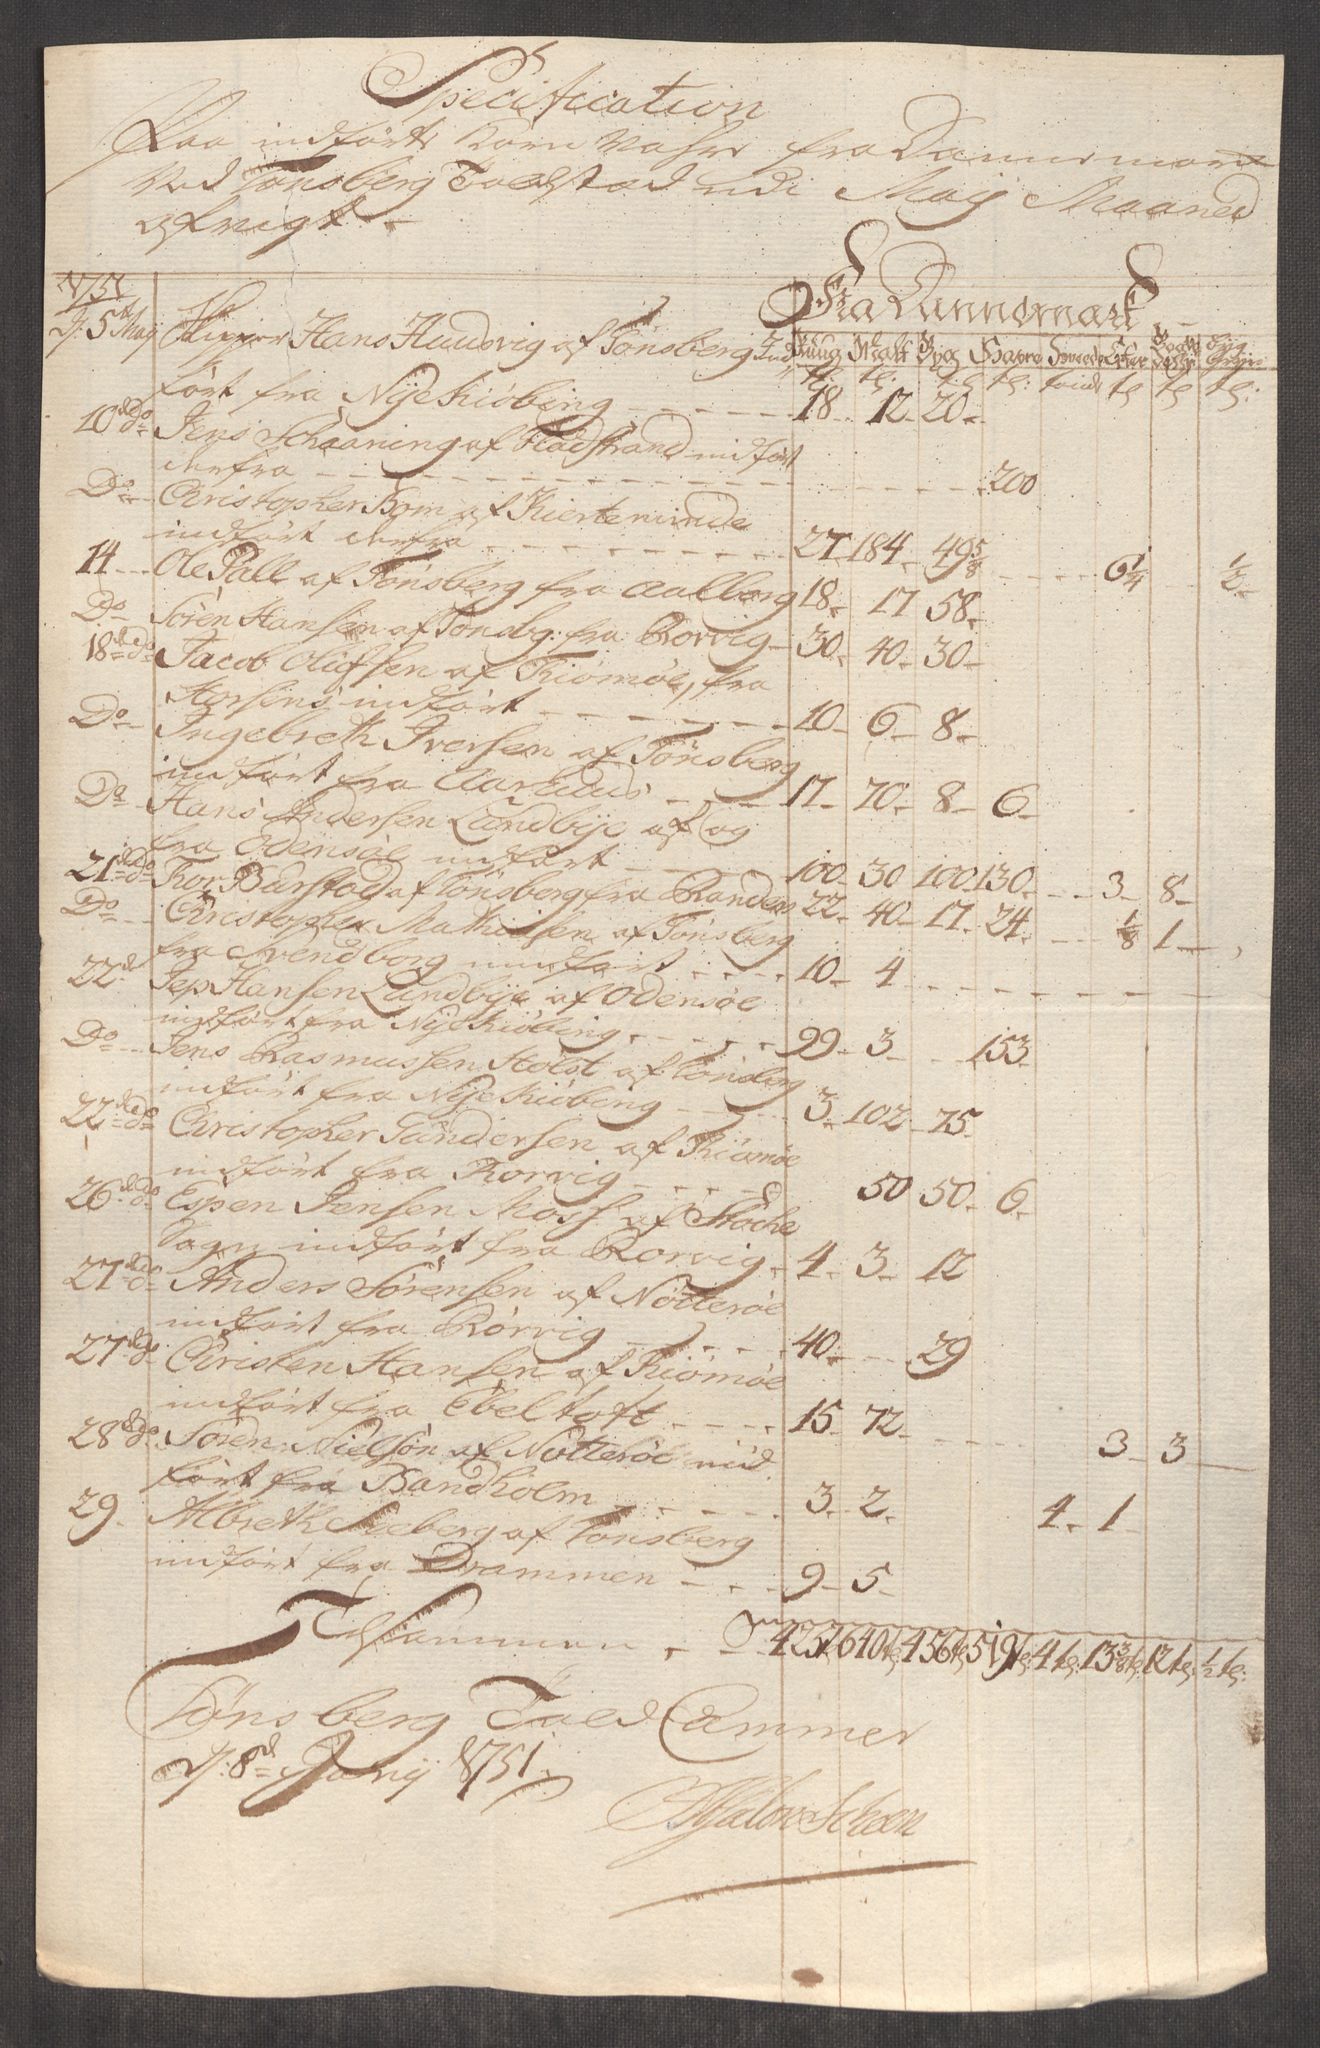 Specification
Paa indførte Korn Vahre fra Dannemarck
Ved Tønsberg Toldsted udi Maij Maaned
afvigt.-
Fra Dannemark
1751
d: 5te Maij Skipper Hans Hundevig af Tønsberg Ind
Rüug Malt Byg Hafre Hvede Erter Boghvede Gryn Byg Gryn
ført fra Nÿe Kiöbing - - - - - 18 12 20 -
10de do Jens Schaaning af Fladstrand indført
derfra - - - - - - - 200
Do Christopher Bom af Kierteminde
indført derfra - - - - - 27 184 49 5/8 - - - 6 1/4 - 1/2 -
14 - Ole Pall af Tønsberg fra Aalborg 18 - 17 58 -
Do Søren Hansen af Tønsbg: fra Rorvig - 30 - 40 - 30 -
18de do Jacob Olufsen af Kiømøe, fra
Horsens indført - - - - - 10 - 6 - 8 -
Do Ingebreth Iversen af Tønsberg
indført fra Aarhuus - - - 17 - 70 - 8 - 6 -
Do Hans Andersen Lundbÿe af og
fra Odensøe indført - - - 100 - 30 100 - 130 - - - 3 - 8 -
21de do Thor Burstad af Tønsberg fra Randers 22 - 40 - 17 - 24 - - - 1/8 1 -
Do - Christopher Mathiesen af Tønsberg
fra Svendborg indført - - - 10 - 4 - - - - -
22de Jep Hansen Lundbÿe af Odensøe
indført fra Nÿe Kiöbing - - - - 99 - 3 - - 153 -
Do - Jens Rasmussen Holst af Tønsbg
indført fra Nÿe Kiöbing - - - 3 - 102 - 75 -
22de do Christopher Gundersen af Kiømøe
indført fra Rorvig - - - - 50 50 - 6 -
26de do Espen Jensen Moss af Stocke
Sogn indført fra Rorvig - 4 - 3 - 12
27de do Anders Sørensen af Nøtterøe
indført fra Rørvig - - - - 40 - - - 29
27de do Christen Hansen af Kiømøe
indført fra Ebeltoft - - - - 15 - 72 - - - - 3 - 3 -
28de do Søren Nielsøn af Nøtterøe ind
ført fra Bandholm - - - - 3 - 2 - 4 - 1 -
29 - Albreth Seeberg af Tønsberg
indført fra Drammen - - - 9 - 5 -
Tilsammen - - 425 640 tr 456 tr 519 tr: 4 tr: 13 3/8 tr: 12 tr: 1/2 tr:
Tønsberg Told Cammer
d: 8de Junij 1751.